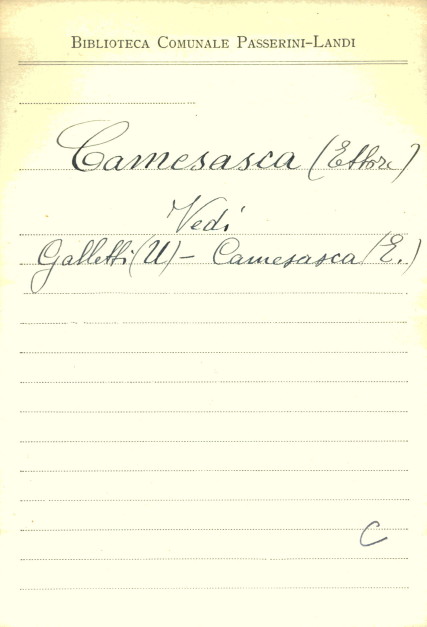 BIBLIOTECA COMUNALE PASSERINI-LANDI
Camesasca (Ettore)
Vedi
Galletti (U) - Camesasca (E.)
C